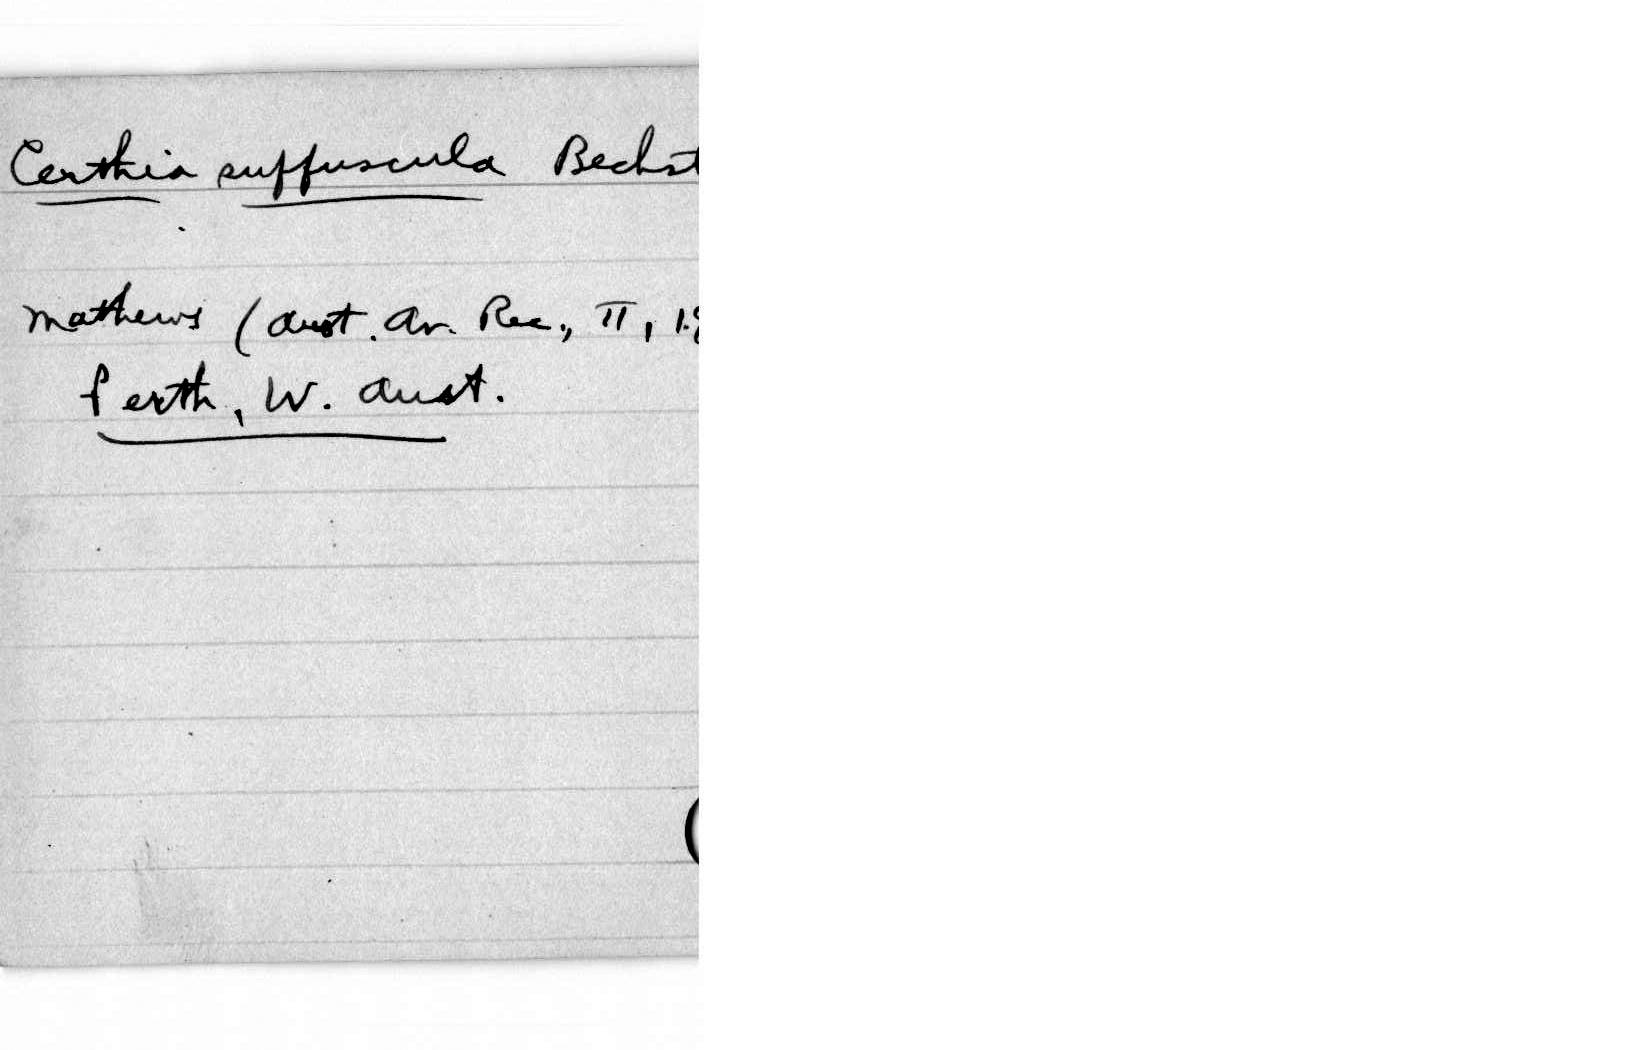 Certhia suffuscula Bechst
Mathews (Aust. Av. Rec., II, 19
Perth, W. Aust.